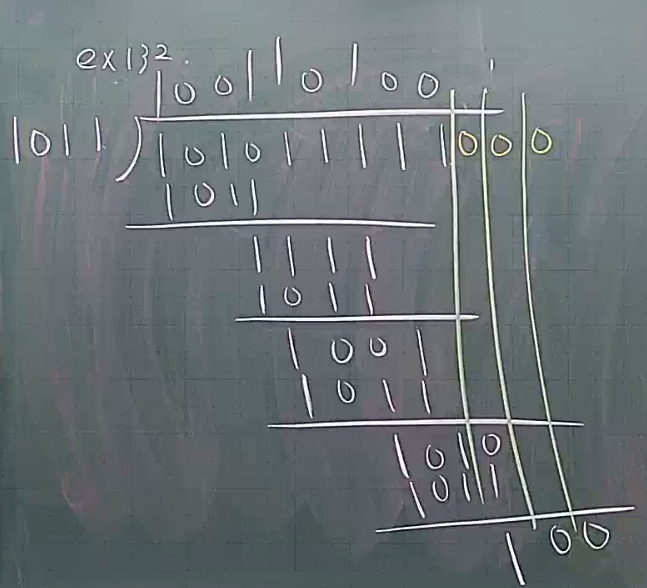 ex132.
100110100
1011)101011111000
1011
1111
1011
1001
1011
1010
1011
100